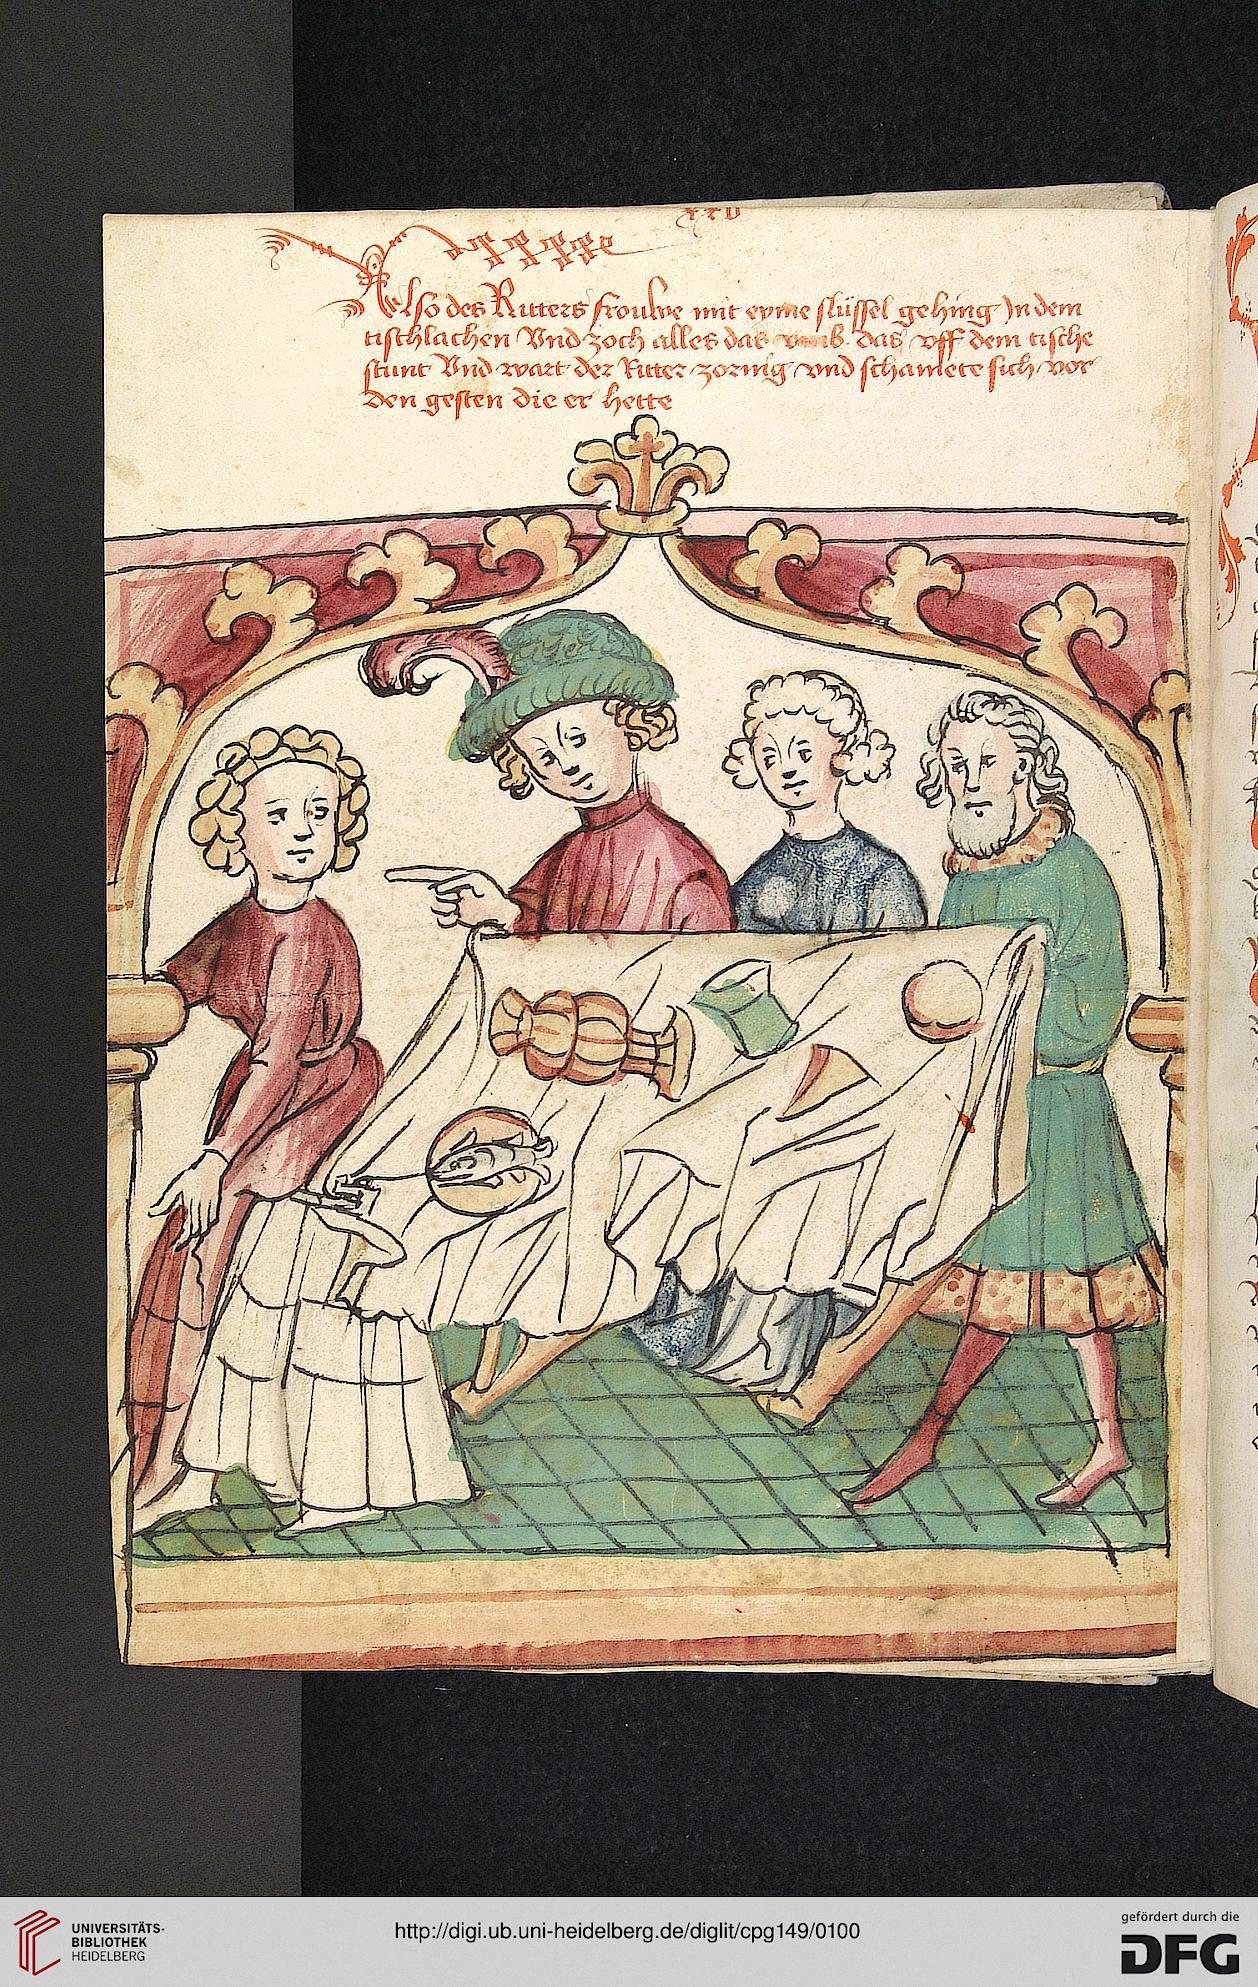 xxv
Also des Ritters frouwe mit eyme slüssel gehing In dem
tischlachen Vnd zoch alles das umb das vff dem tische
stunt Vnd wart der Ritter zornig vnd schamete sich vor
den gesten die er hette
UNIVERSITÄTS-
BIBLIOTHEK
HEIDELBERG
http://digi.ub.uni-heidelberg.de/diglit/cpg149/0100
gefördert durch die
DFG